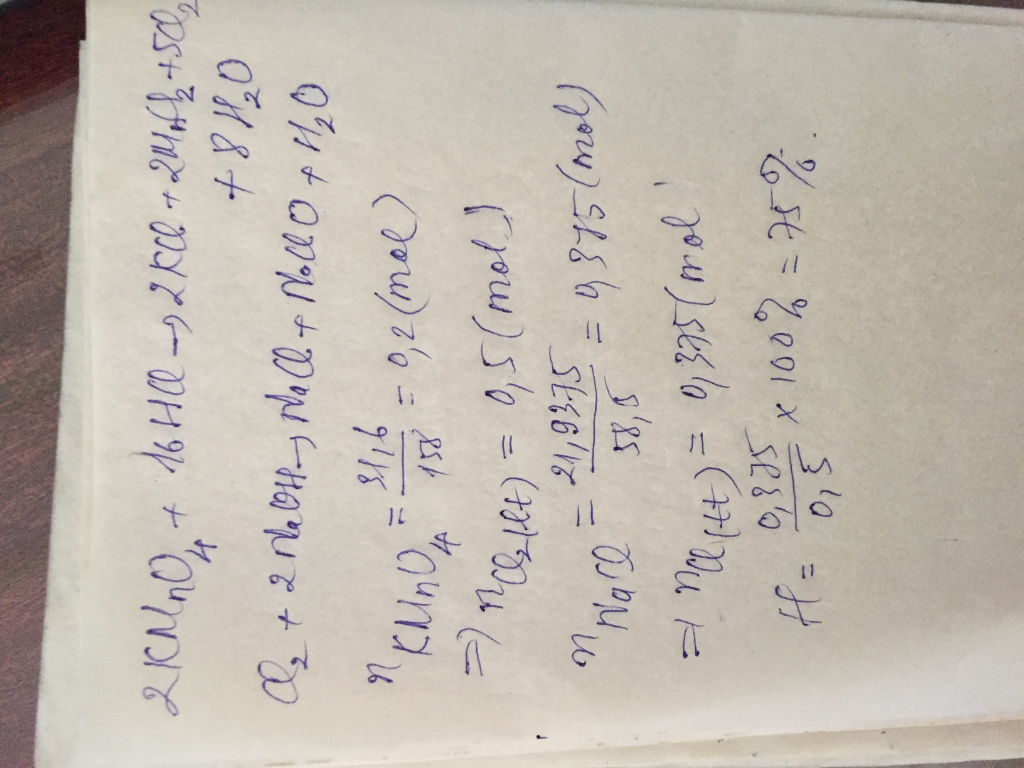 2KMnO4 + 16HCl → 2KCl + 2MnCl2 + 5Cl2
+ 8H2O
Cl2 + 2NaOH → NaCl + NaClO + H2O
nKMnO4 = 31,6/158 = 0,2 (mol)
=) nCl2(lt) = 0,5 (mol)
nNaCl = 21,9375/58,5 = 0,375 (mol)
=) nCl(tt) = 0,375 (mol)
H = 0,375/0,5 x 100% = 75%.